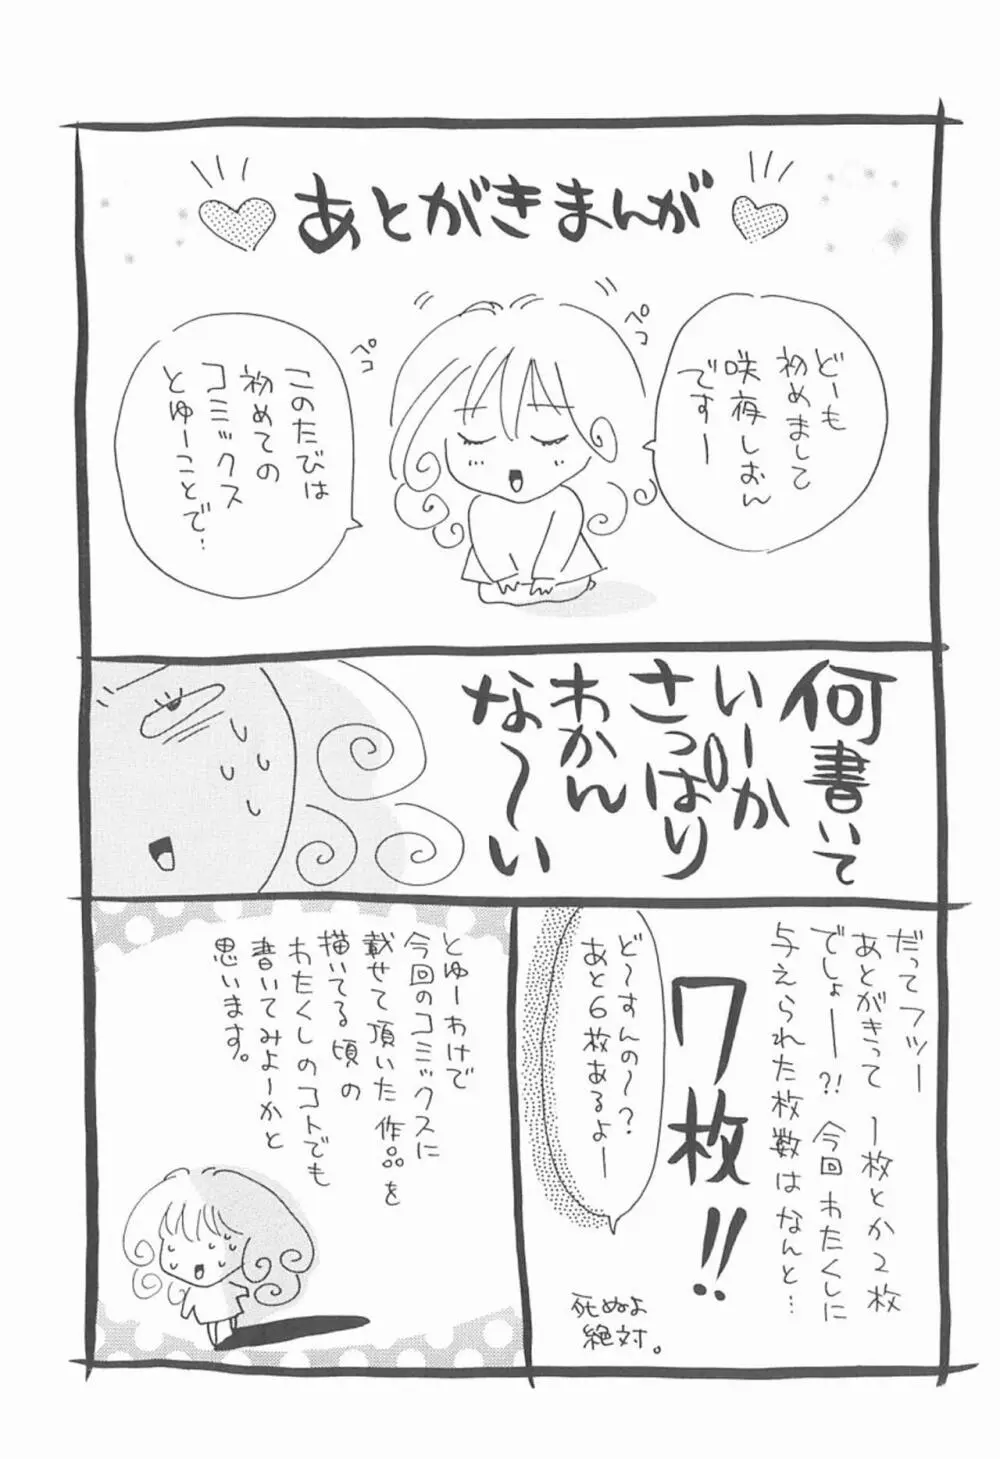 あとがきまんが
どーも
初めまして
咲夜しおん
ですー
ペコ
ペコ
このたびは
初めての
コミックス
とゆーことで…
何書いて
いーか
さっぱり
わかん
な〜い
だってフツー
あとがきって1枚とか2枚
でしょー?!今回わたくしに
与えられた枚数はなんと…
7枚!!
ど〜すんの〜?
あと6枚あるよー
死ぬよ
絶対。
とゆーわけで
今回のコミックスに
載せて頂いた作品を
描いてる頃の
わたくしのコトでも
書いてみよーかと
思います。